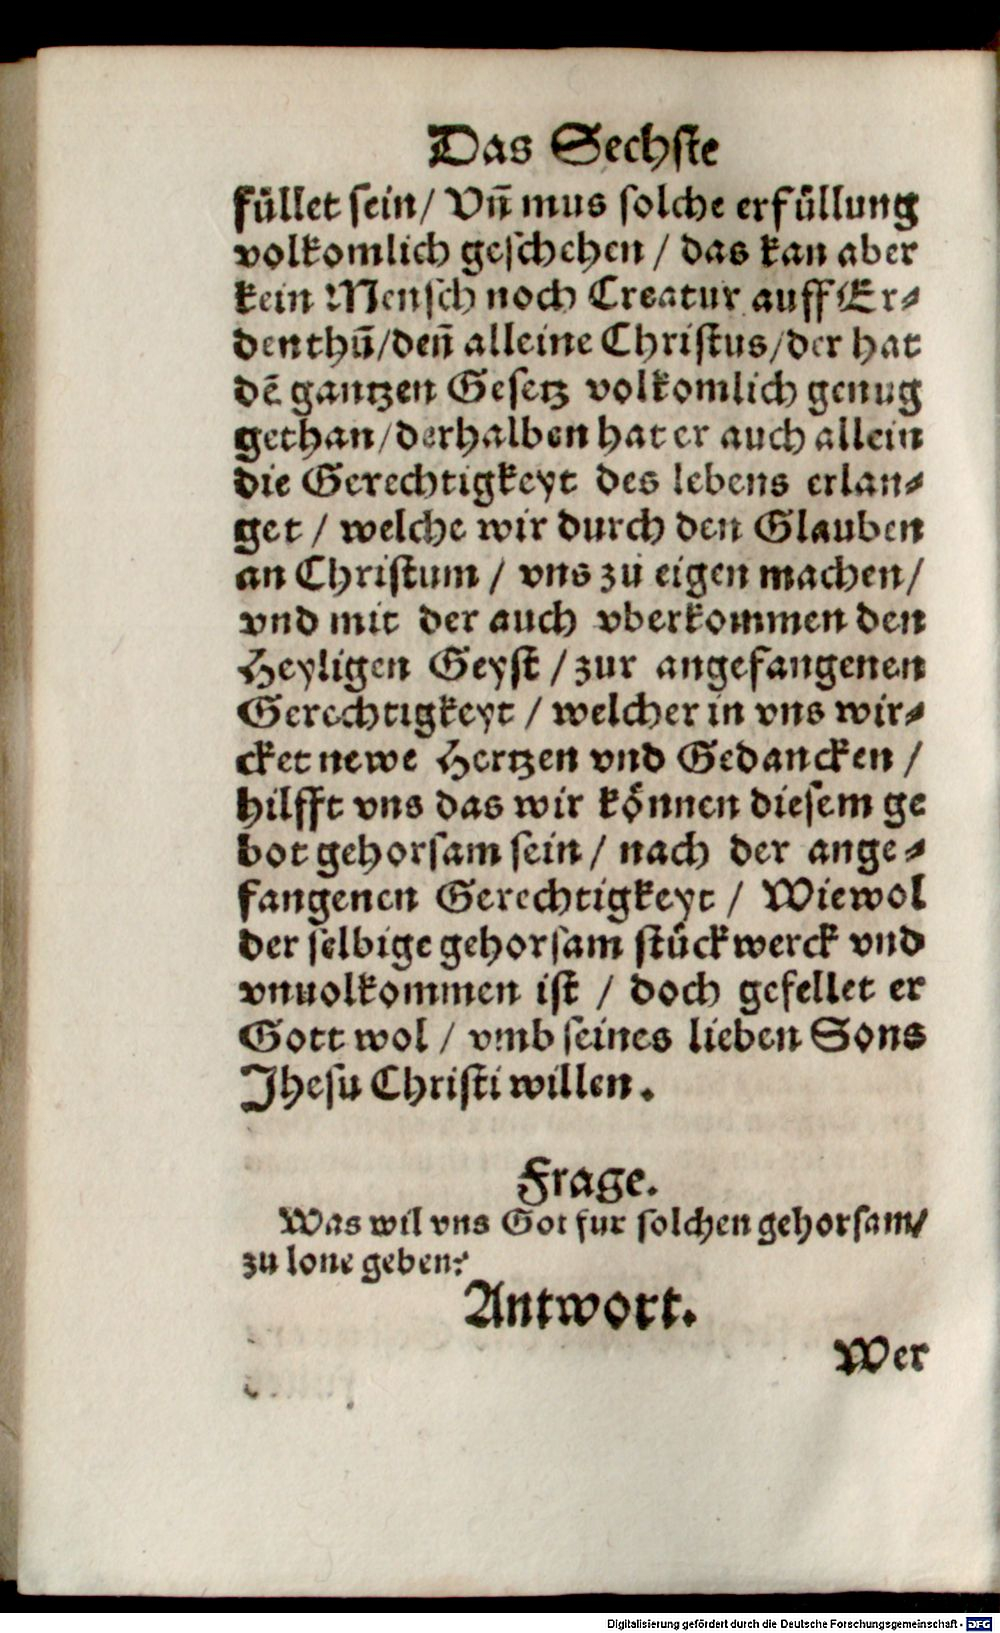 Das Sechste
füllet sein/ Vn̄ mus solche erfüllung
volkomlich geschehen / das kan aber
kein Mensch noch Creatur auff Er⸗
den thū/den̄ alleine Christus/der hat
dē gantzen Gesetz volkomlich genug
gethan/derhalben hat er auch allein
die Gerechtigkeyt des lebens erlan⸗
get / welche wir durch den Glauben
an Christum / vns zu eigen machen/
vnd mit der auch vberkommen den
Heyligen Geyst / zur angefangenen
Gerechtigkeyt / welcher in vns wir⸗
cket newe Hertzen vnd Gedancken /
hilfft vns das wir können diesem ge
bot gehorsam sein / nach der ange⸗
fangenen Gerechtigkeyt / Wiewol
der selbige gehorsam stückwerck vnd
vnuolkommen ist / doch gefellet er
Gott wol / vmb seines lieben Sons
Jhesu Christi willen.
Frage.
Was wil vns Got fur solchen gehorsam/
zu lone geben?
Antwort.
Wer
Digitalisierung gefördert durch die Deutsche Forschungsgemeinschaft - DFG